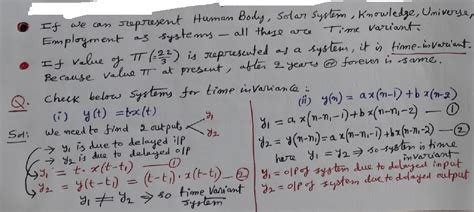 If we can represent Human Body, Solar System, Knowledge, Universe,
Employment as systems – all these are Time Variant.
If value of π (22/7) is represented as a system, it is time-invariant.
Because value π at present, after 2 years or forever is same.
Q. Check below systems for time invariance :
(i) y(t) = t x(t)
Sol: We need to find 2 outputs y1 y2
y1 is due to delayed i/p
y2 is due to delayed o/p
y1 = t. x(t-t1) — ①
y2 = y(t-t1) = (t-t1). x(t-t1) — ②
y1 ≠ y2 ⇒ so time variant
system
(ii) y(n) = a x(n-1) + b x(n-2)
y1 = a x(n-n1-1) + b x(n-n1-2) — ①
y2 = y(n-n1) = a x(n-n1-1) + b x(n-n1-2) — ②
here y1 = y2 ⇒ so system is time
invariant
y1 = o/p of system due to delayed input
y2 = o/p of system due to delayed output